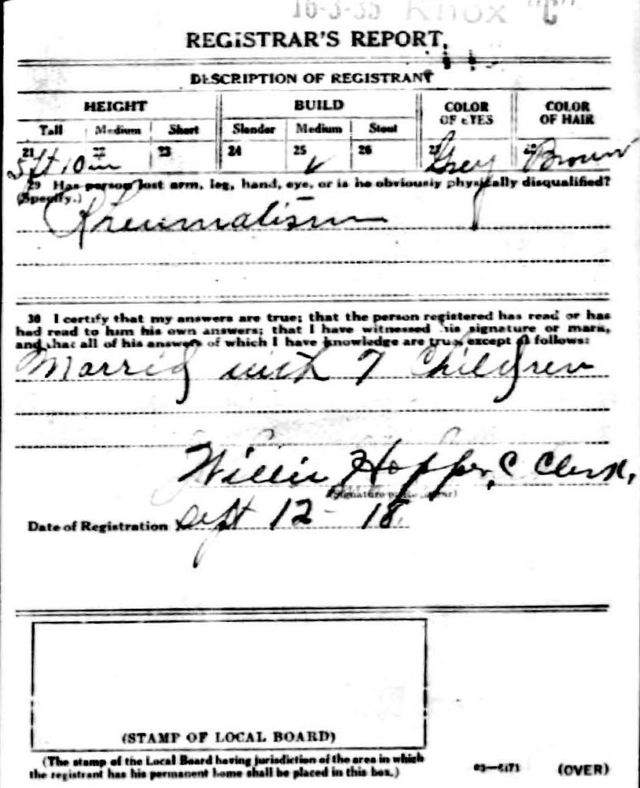 16-3-35 Knox "C"
REGISTRAR'S REPORT
DESCRIPTION OF REGISTRANT
HEIGHT BUILD COLOR OF EYES COLOR OF HAIR
Tall Medium Short Slender Medium Stout
21 22 23 24 25 26 27 28
5ft 10 in ✓ Grey Brown
29 Has person lost arm, leg, hand, eye, or is he obviously physically disqualified?
(Specify.)
Rheumatism
30 I certify that my answers are true; that the person registered has read or has
had read to him his own answers; that I have witnessed his signature or mark,
and that all of his answers of which I have knowledge are true, except as follows:
Marrid with 7 Children
Willie Hopper, C Clerk,
(Signature of Registrar)
Date of Registration Sept 12 - 18
(STAMP OF LOCAL BOARD)
(The stamp of the Local Board having jurisdiction of the area in which
the registrant has his permanent home shall be placed in this box.)
03—6171 (OVER)